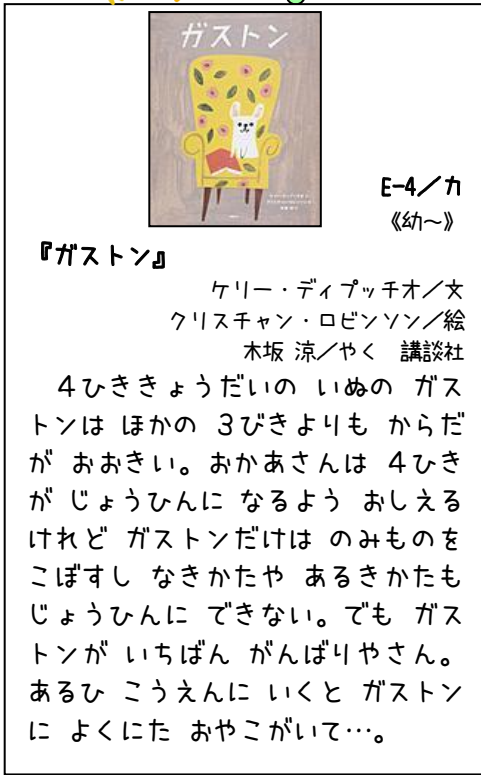 ガストン
E-4／カ
《幼〜》
『ガストン』
ケリー・ディプッチオ／文
クリスチャン・ロビンソン／絵
木坂 涼／やく 講談社
4ひききょうだいの いぬの ガス
トンは ほかの 3びきよりも からだ
が おおきい。おかあさんは 4ひき
が じょうひんに なるよう おしえる
けれど ガストンだけは のみものを
こぼすし なきかたや あるきかたも
じょうひんに できない。でも ガス
トンが いちばん がんばりやさん。
あるひ こうえんに いくと ガストン
に よくにた おやこがいて…。